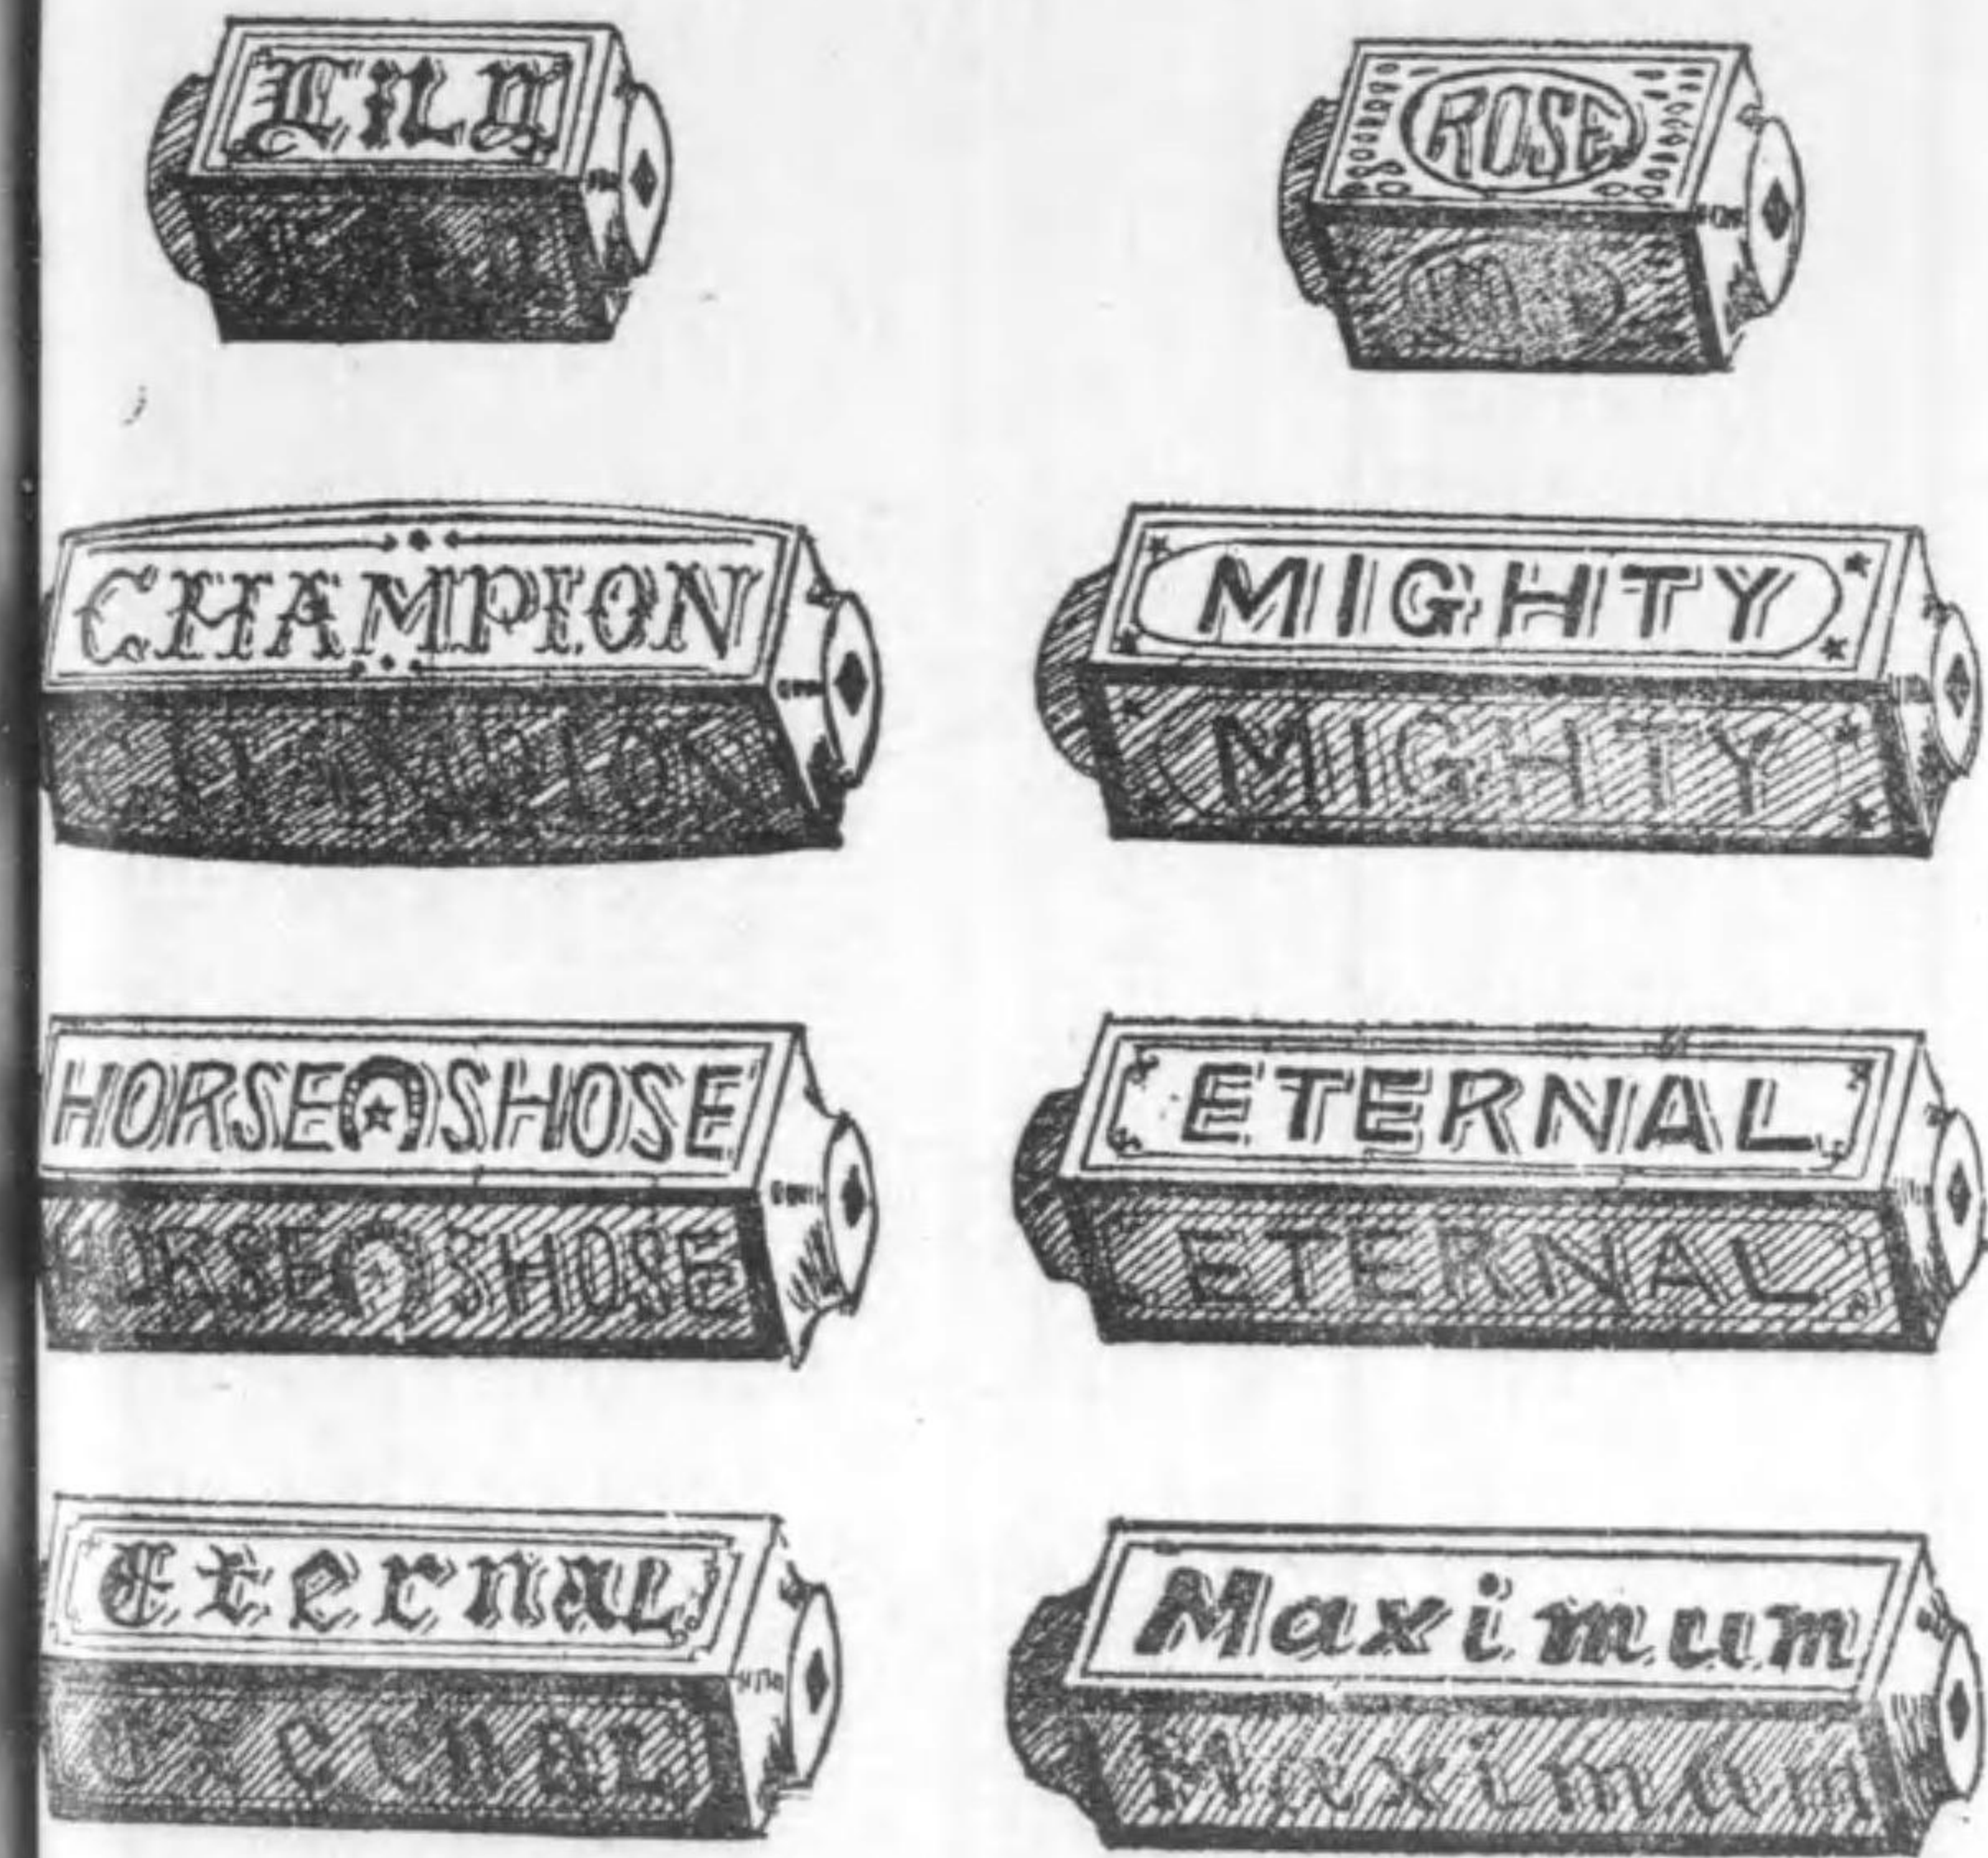 Lily
ROSE
CHAMPION
CHAMPION
MIGHTY
MIGHTY
HORSE SHOSE
HORSE SHOSE
ETERNAL
ETERNAL
Eternal
Eternal
Maximum
Maximum